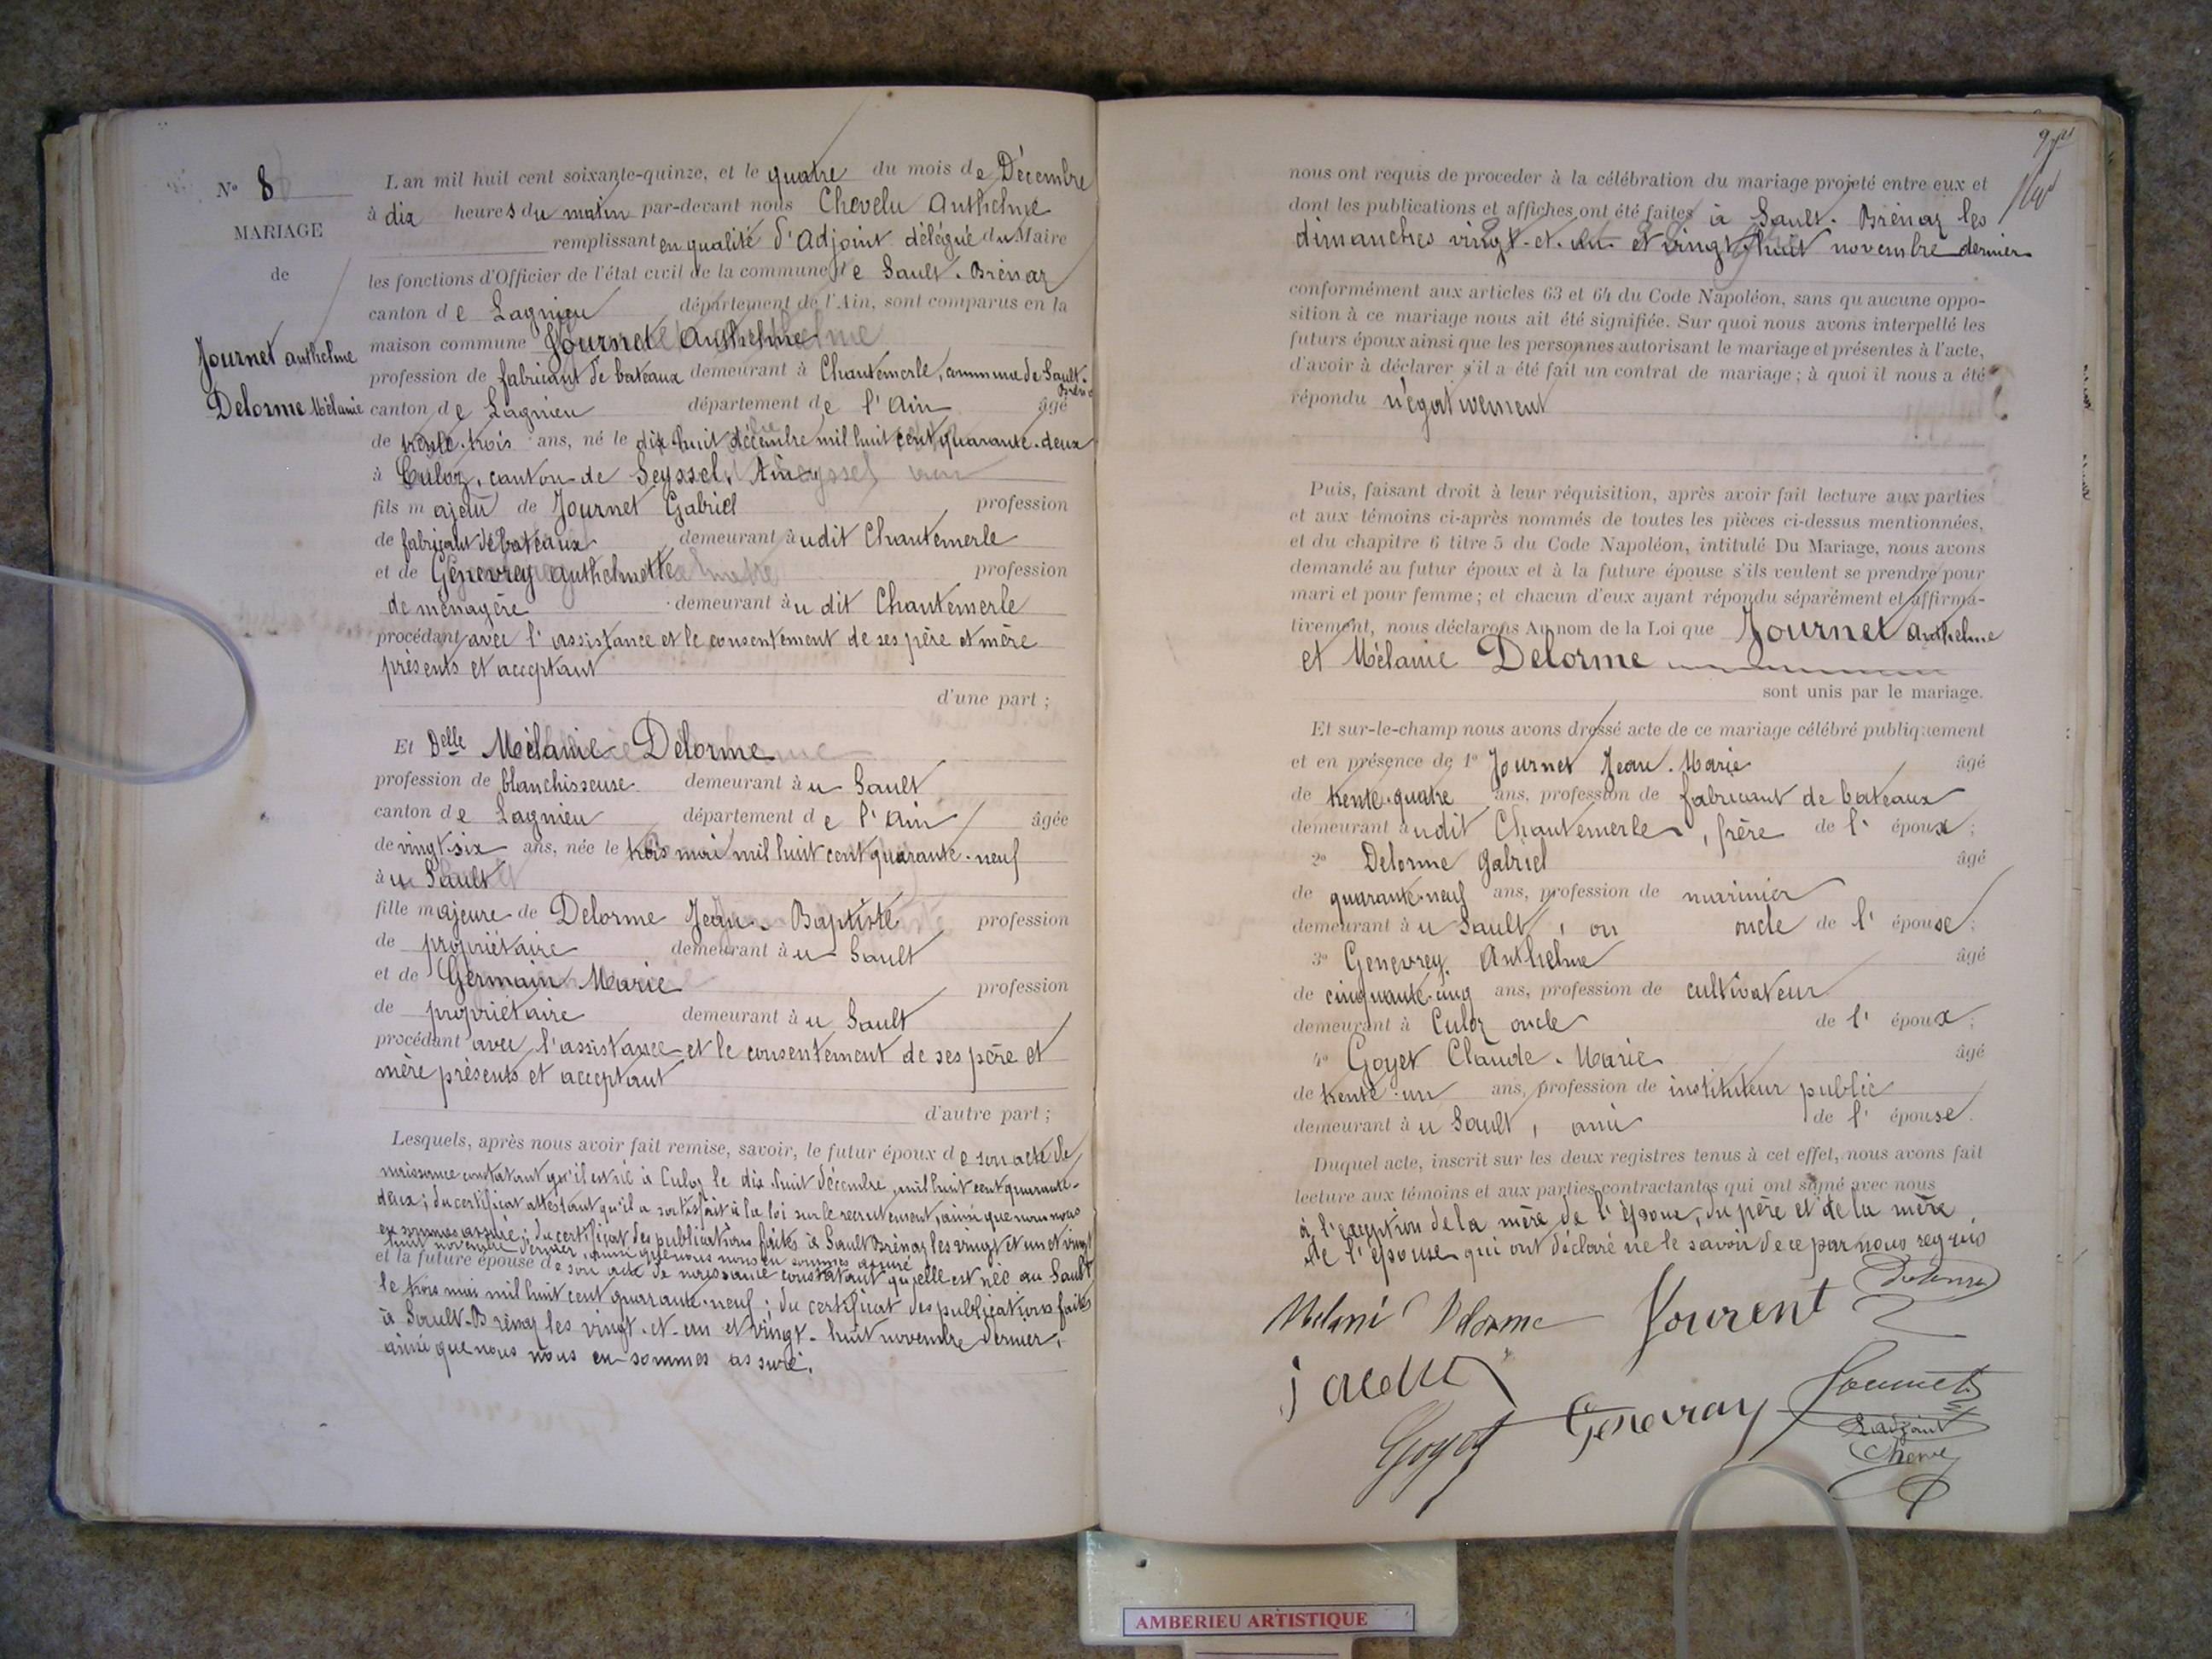 N° 8
MARIAGE
de
Journet Anthelme
Delorme Mélanie
L'an mil huit cent soixante-quinze, et le quatre du mois de Décembre
à dix heures du matin par-devant nous Chevelu Anthelme
remplissant en qualité d'Adjoint délégué du Maire
les fonctions d'Officier de l'état civil de la commune de Sault-Brénaz
canton de Lagnieu département de l'Ain, sont comparus en la
maison commune Journet Anthelme
profession de fabricant de bateaux demeurant à Chantemerle, commune de Sault-Brénaz
canton de Lagnieu département de l'Ain âgé
de trente-trois ans, né le dix-huit décembre mil huit cent quarante-deux
à Culoz, canton de Seyssel, Ain
fils majeur de Journet Gabriel profession
de fabricant de bateaux demeurant audit Chantemerle
et de Genevrey Anthelmette profession
de ménagère demeurant audit Chantemerle
procédant avec l'assistance et le consentement de ses père et mère
présents et acceptant
d'une part ;
Et Delle Mélanie Delorme
profession de blanchisseuse demeurant au Sault
canton de Lagnieu département de l'Ain âgée
de vingt-six ans, née le trois mai mil huit cent quarante-neuf
au Sault
fille majeure de Delorme Jean-Baptiste profession
de propriétaire demeurant au Sault
et de Germain Marie profession
de propriétaire demeurant au Sault
procédant avec l'assistance et le consentement de ses père et
mère présents et acceptant
d'autre part ;
Lesquels, après nous avoir fait remise, savoir, le futur époux de son acte de
naissance constatant qu'il est né à Culoz le dix-huit décembre mil huit cent quarante-
deux ; du certificat attestant qu'il a satisfait à la loi sur le recrutement, ainsi que nous nous
en sommes assuré ; du certificat des publications faites à Sault-Brénaz les vingt et un et vingt
huit novembre dernier, ainsi que nous nous en sommes assuré
et la future épouse de son acte de naissance constatant qu'elle est née au Sault
le trois mai mil huit cent quarante-neuf ; du certificat des publications faites
à Sault-Brénaz les vingt-et-un et vingt-huit novembre dernier,
ainsi que nous nous en sommes assuré.
nous ont requis de procéder à la célébration du mariage projeté entre eux et
dont les publications et affiches ont été faites à Sault-Brénaz les
dimanches vingt-et-un et vingt-huit novembre dernier
conformément aux articles 63 et 64 du Code Napoléon, sans qu'aucune oppo-
sition à ce mariage nous ait été signifiée. Sur quoi nous avons interpellé les
futurs époux ainsi que les personnes autorisant le mariage et présentes à l'acte,
d'avoir à déclarer s'il a été fait un contrat de mariage ; à quoi il nous a été
répondu négativement
Puis, faisant droit à leur réquisition, après avoir fait lecture aux parties
et aux témoins ci-après nommés de toutes les pièces ci-dessus mentionnées,
et du chapitre 6 titre 5 du Code Napoléon, intitulé Du Mariage, nous avons
demandé au futur époux et à la future épouse s'ils veulent se prendre pour
mari et pour femme ; et chacun d'eux ayant répondu séparément et affirma-
tivement, nous déclarons Au nom de la Loi que Journet Anthelme
et Mélanie Delorme
sont unis par le mariage.
Et sur-le-champ nous avons dressé acte de ce mariage célébré publiquement
et en présence de 1° Journet Jean-Marie âgé
de trente-quatre ans, profession de fabricant de bateaux
demeurant audit Chantemerle, frère de l'époux ;
2° Delorme Gabriel âgé
de quarante-neuf ans, profession de marinier
demeurant au Sault, on oncle de l'épouse ;
3° Genevrey Anthelme âgé
de cinquante-cinq ans, profession de cultivateur
demeurant à Culoz oncle de l'époux ;
4° Goyet Claude-Marie âgé
de trente-un ans, profession de instituteur public
demeurant au Sault, ami de l'épouse.
Duquel acte, inscrit sur les deux registres tenus à cet effet, nous avons fait
lecture aux témoins et aux parties contractantes qui ont signé avec nous
à l'exception de la mère de l'époux, du père et de la mère
de l'épouse qui ont déclaré ne le savoir de ce par nous requis
Melani Delorme Jourent Delorme
Goyet Genevray Journet
L'adjoint
Cheve
AMBERIEU ARTISTIQUE